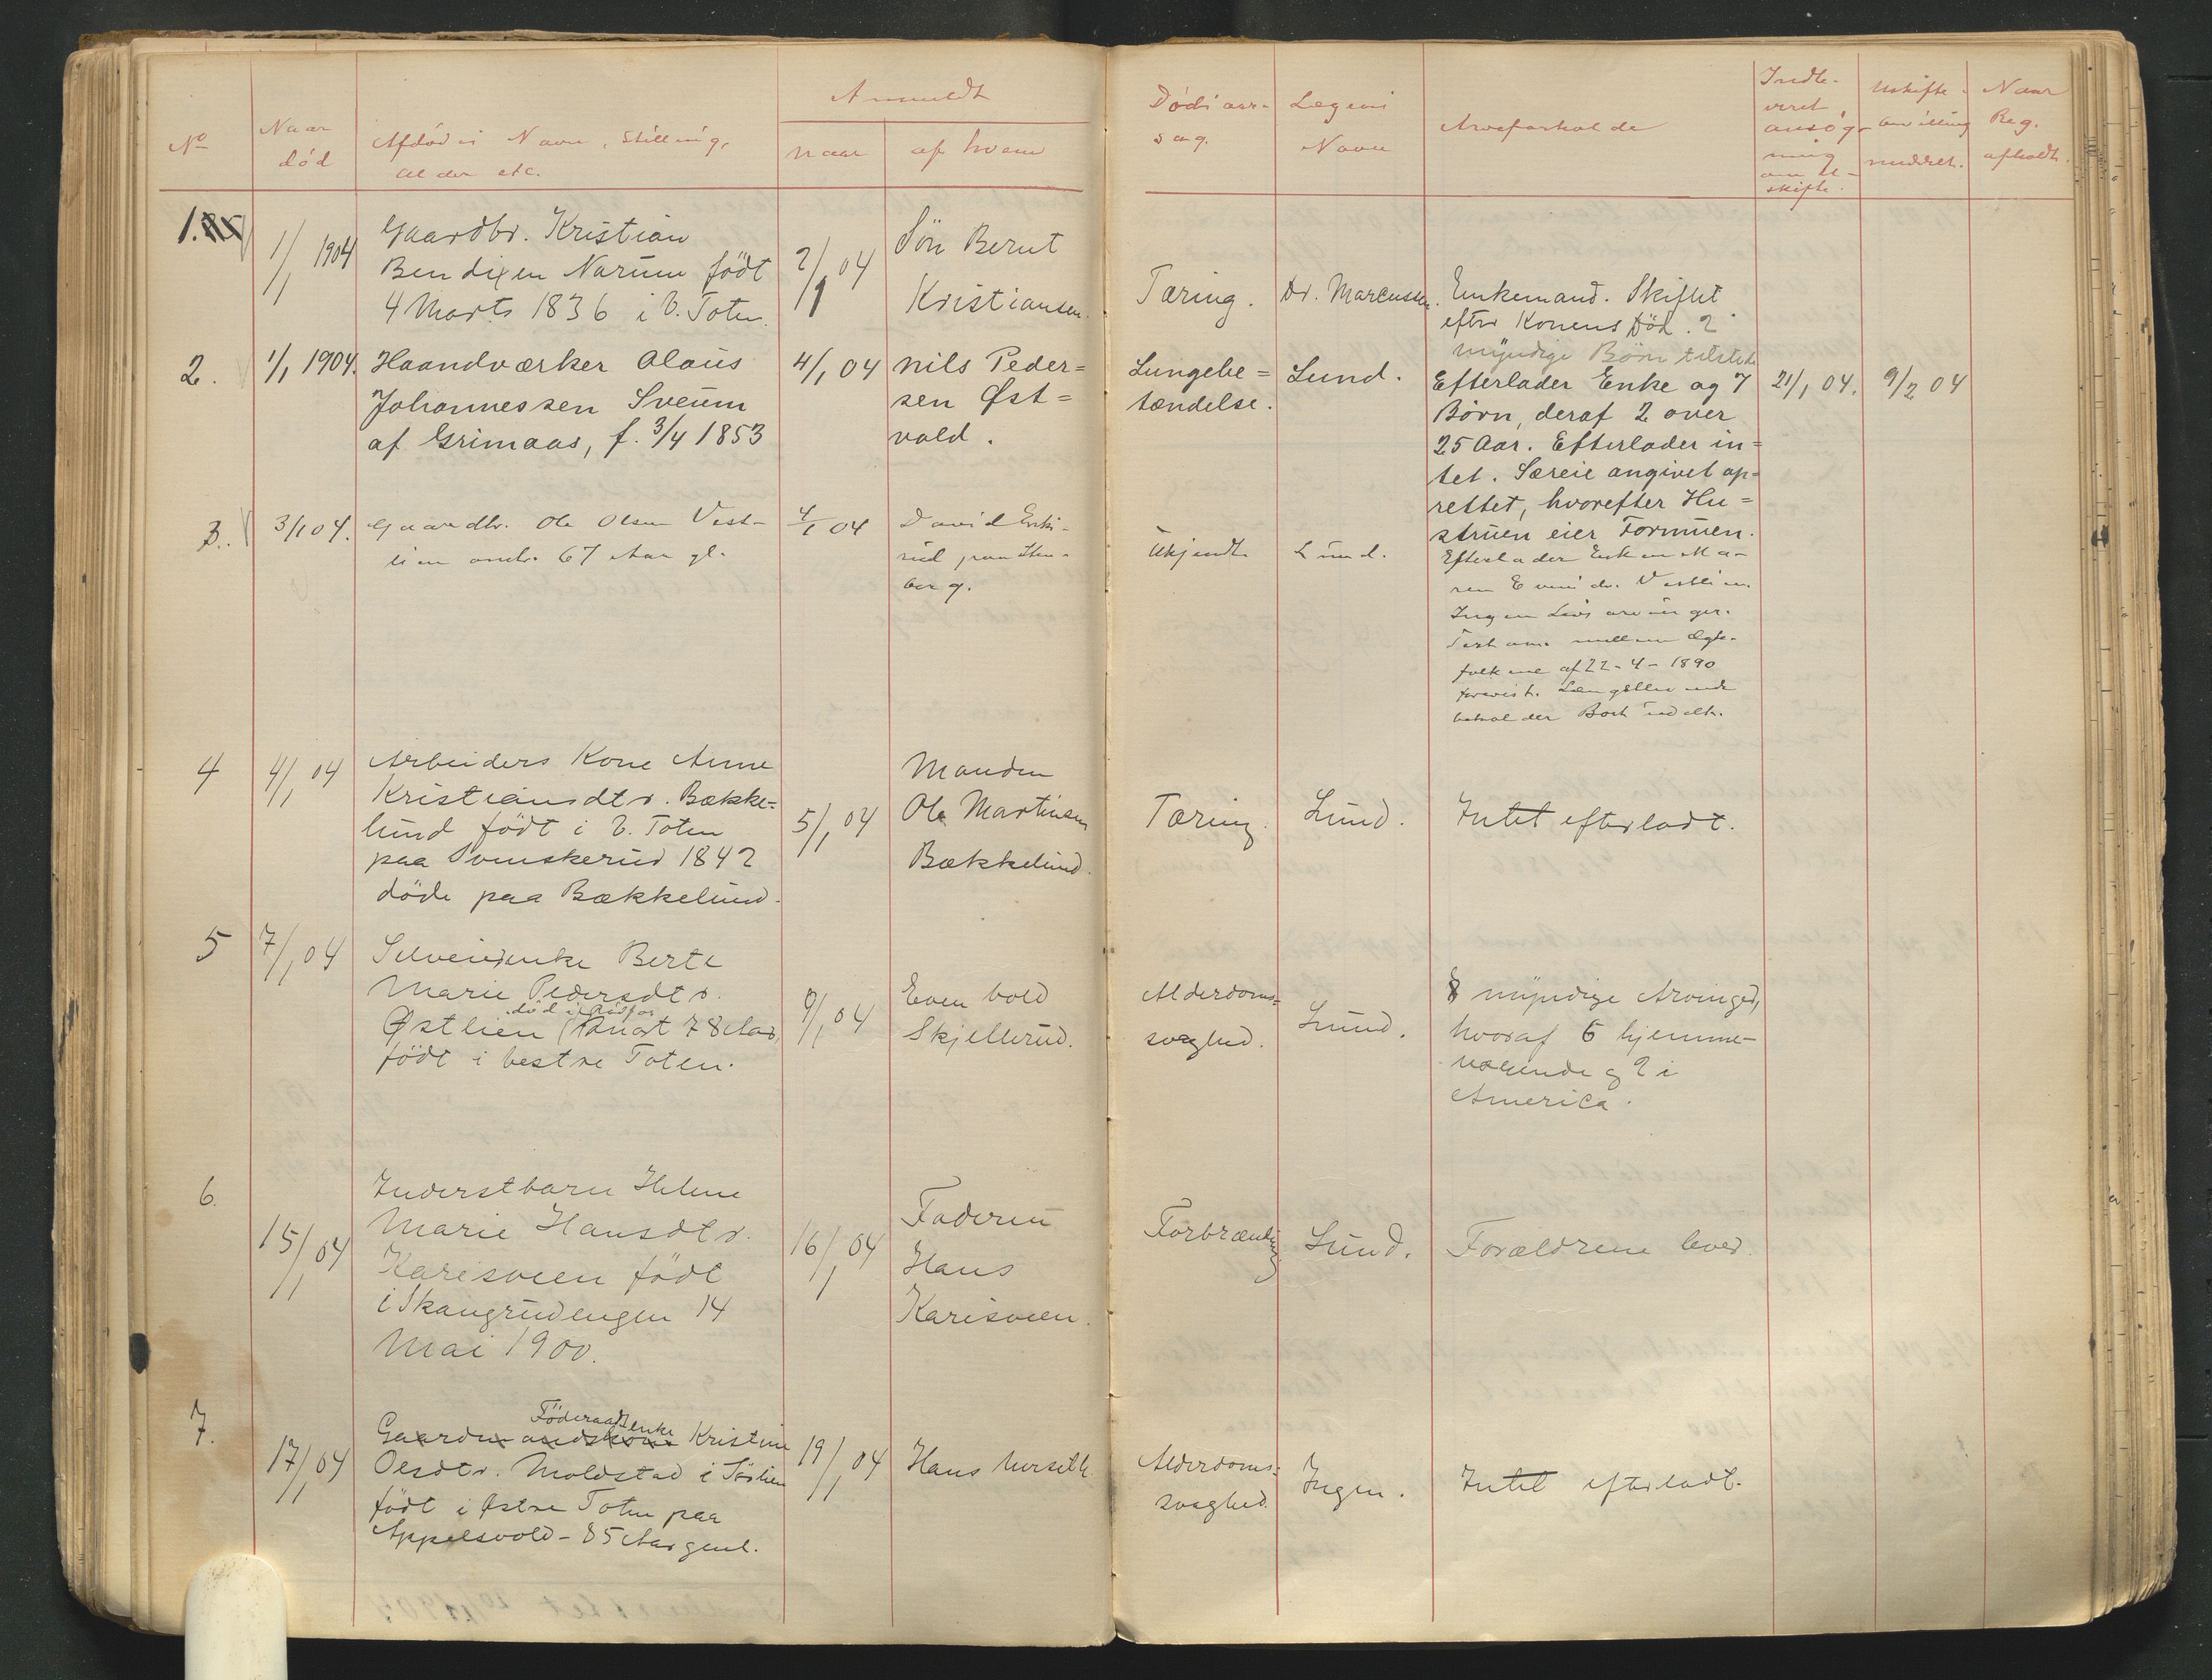 No
Naar
död
Afdødes Navn, Stilling,
Alder etc.
Anmeldt
naar
af hvem
Dödsaar-
sag.
Lægens
Navn
Arveforholde
Indle-
veret
ansøg-
ning
om U-
skifte.
Uskifte-
bevilling
meddelt.
Naar
Reg.
afholdt.
1.
1/1 1904
Gaardbr. Kristian
Bendixen Narum født
4 Marts 1836 i V. Toten.
2/1 04
Sön Bernt
Kristiansen.
Tæring.
Dr. Marcussen.
Enkemand. Skiftet
efter Konens Död. 2
myndige Börn tilstede
2.
1/1 1904.
Haandværker Olaus
Johannessen Sveum
af Grimaas, f. 3/4 1853
4/1 04
Nils Peder=
sen Øst=
vold.
Lungebe=
tændelse.
Lund.
Efterlader Enke og 7
Børn, deraf 2 over
25 Aar. Efterlader in=
tet. Særeie angivet op=
rettet, hvorefter Hu=
struen eier Formuen.
21/1 04.
9/2 04
3.
3/1 04.
Gaardbr. Ole Olsen Vest-
lien omtr. 67 Aar gl.
4/1 04
David Enke-
rud paa
berg.
Ukjendt
Lund.
Efterlader Enken Ma-
ren Evensdr. Vestlien.
Ingen Livsarvinger.
Testam. mellem Ægte-
folkene af 22-4-1890
forevist. Længstlevende
beholder Boet udelt.
4
4/1 04
Arbeiders Kone Anne
Kristiansdtr. Bække-
lund født i V. Toten
paa Svenskerud 1842
døde paa Bækkelund.
5/1 04
Manden
Ole Martinsen
Bækkelund.
Tæring.
Lund.
Intet efterladt.
5
7/1 04
Selveierenke Berte
Marie Pedersdtr.
død i Rödfos
Østlien 78 Aar,
født i Vestre Toten.
9/1 04
Even vold
Skjellerud.
Alderdoms=
svaghed.
Lund.
8 myndige Arvinger,
hvoraf 6 hjemme-
værende og 2 i
America.
6.
15/1 04
Inderstbarn Helene
Marie Hansdtr.
Karisveen født
i Skangrudengen 14
Mai 1900.
16/1 04
Faderen
Hans
Karisveen.
Forbrænding
Lund.
Forældrene lever.
7.
17/1 04
Föderaadsenke
Gaardmandskone Kristine
Olsdtr. Moldstad i Sörlien
født i Østre Toten paa
Appelsvold - 85 Aar gml.
19/1 04
Hans
Alderdoms=
svaghed.
Ingen.
Intet efterladt.